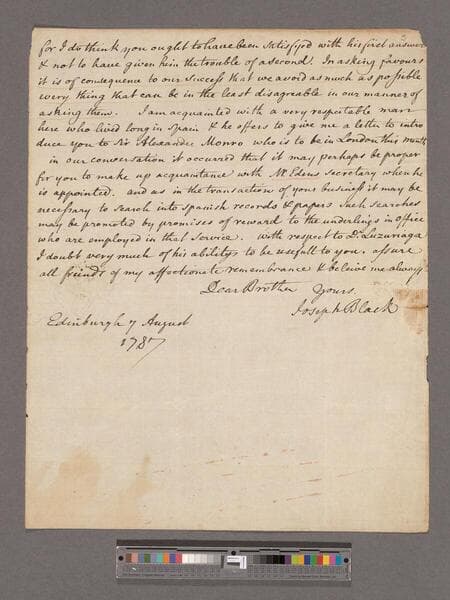 for I do think you ought to have been satisfyd with his first answer
& not to have given him the trouble of a second. In asking favours
it is of consequence to our success that we avoid as much as possible
every thing that can be in the least disagreeable in our manner of
asking them. I am acquainted with a very respectable man
here who lived long in Spain & he offers to give me a letter to intro
duce you to Sir Alexander Monro who is to be in London this month
in our conversation it occurred that it may perhaps be proper
for you to make up acquaintance with Mr Edens Secretary when he
is appointed. and as in the transaction of your business it may be
necessary to search into Spanish records & papers Such searches
may be promoted by promises of reward to the underlings in office
who are employed in that Service. with respect to Dr Luzuriaga
I doubt very much of his abilitys to be usefull to you. assure
all friends of my affectionate remembrance & beleive me always
Dear Brother Yours.
Joseph Black
Edinburgh 7 August
1787